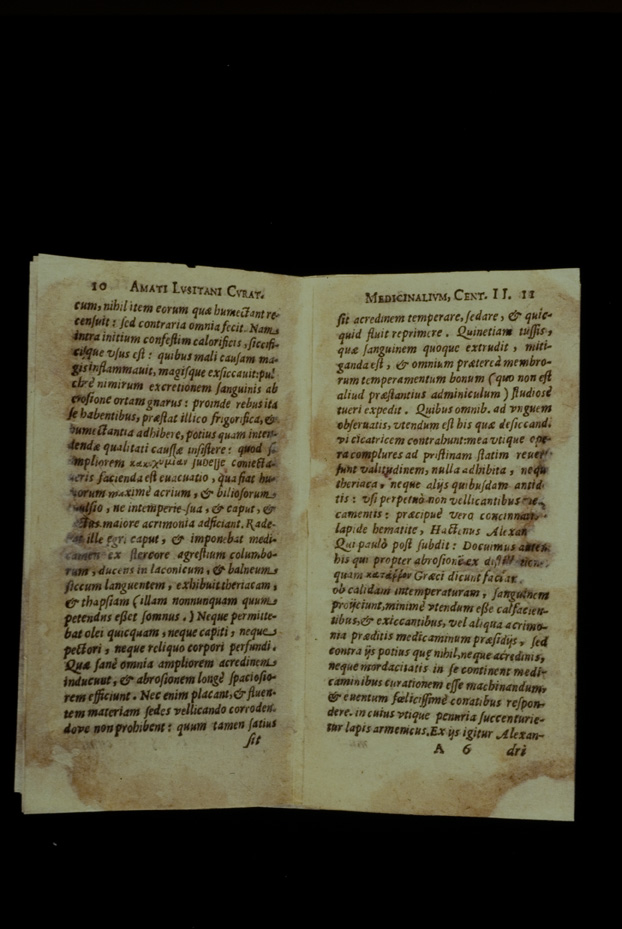 10 AMATI LVSITANI CVRAT.
cum, nihil item eorum quæ humectant re-
censuit: sed contraria omnia fecit. Nam
intra initium confestim calorificis, siccifi-
cisque vsus est: quibus mali causam ma-
gis inflammauit, magisque exsiccauit: pul
chrè nimirum excretionem sanguinis ab
erosione ortam gnarus: proinde rebus ita
se habentibus, præstat illico frigorifica, &
humectantia adhibere, potius quam inten-
dendæ qualitati caussæ insistere: quod si
ampliorem subesse coniecta-
ueris facienda est euacuatio, qua fiat hu-
morum maximè acrium, & biliosorum
, ne intemperie sua, & caput, &
maiore acrimonia adficiant. Rade-
bat ille ægri caput, & imponebat medi-
camen ex stercore agrestium columbo-
rum, ducens in laconicum, & balneum
siccum languentem, exhibuit theriacam,
& thapsiam (illam nonnunquam quum
petendus esset somnus.) Neque permitte-
bat olei quicquam, neque capiti, neque
pectori, neque reliquo corpori perfundi.
Quæ sanè omnia ampliorem acredinem
inducunt, & abrosionem longè spaciosio-
rem efficiunt. Nec enim placant, & fluen-
tem materiam sedes vellicando corroden-
do ve non prohibent: quum tamen satius
sit
MEDICINALIVM, CENT. II. 11
sit acredinem temperare, sedare, & quic-
quid fluit reprimere. Quinetiam tussis,
quæ sanguinem quoque extrudit, miti-
ganda est, & omnium præterea membro-
rum temperamentum bonum (quo non est
aliud præstantius adminiculum) studiosè
tueri expedit. Quibus omnib. ad vnguem
obseruatis, vtendum est his quæ desiccandi
vi cicatricem contrahunt: mea vtique ope-
ra complures ad pristinam statim reuersi
sunt valitudinem, nulla adhibita, neque
theriaca, neque alijs quibusdam antido
tis: vsi perpetuò non vellicantibus
camentis: præcipuè vero concinnato
lapide hematite, Hactenus Alexan
Qui paulò post subdit: Docuimus autem
his qui propter abrosionem ex
quam Græci dicunt
ob calidam intemperaturam, sanguinem
proijciunt, minimè vtendum esse calfacien-
tibus, & exiccantibus, vel aliqua acrimo-
nia præditis medicaminum præsidijs, sed
contra ijs potius quę nihil, neque acredinis,
neque mordacitatis in se continent medi-
caminibus curationem esse machinandum,
& euentum fœlicissimè conatibus respon-
dere. in cuius vtique penuria succenturie-
tur lapis armenicus. Ex ijs igitur Alexan-
A 6 dri